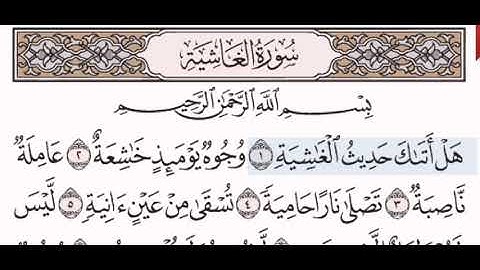 سُورَةُ الغَاشِيَةِ
بِسْمِ اللَّهِ الرَّحْمَٰنِ الرَّحِيمِ
هَلْ أَتَىٰكَ حَدِيثُ الْغَٰشِيَةِ ١ وُجُوهٌ يَوْمَئِذٍ خَٰشِعَةٌ ٢ عَامِلَةٌ
نَّاصِبَةٌ ٣ تَصْلَىٰ نَارًا حَامِيَةً ٤ تُسْقَىٰ مِنْ عَيْنٍ ءَانِيَةٍ ٥ لَّيْسَ